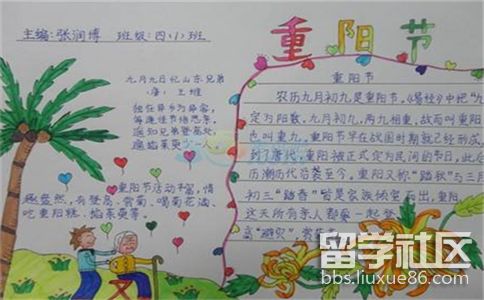 主编:张润博 班级:四(1)班
重阳节
九月九日忆山东兄弟
(唐) 王维
独在异乡为异客,
每逢佳节倍思亲。
遥知兄弟登高处,
遍插茱萸少一人
重阳节活动丰富,情
趣盎然,有登高、赏菊、喝菊花酒、
吃重阳糕、插茱萸等。
重阳节
农历九月初九是重阳节,《易经》中把"九
定为阳数,九月初九,两九相重,故而叫重阳
也叫重九,重阳节早在战国时期就已经形成,
到了唐代,重阳被正式定为民间的节日,此后
历朝历代沿袭至今,重阳又称"踏秋"与三月
初三"踏春"皆是家族倾室而出,重阳
这天所有亲人都要一起登
高"避灾",赏菊
留学社区
bbs.liuxue86.com